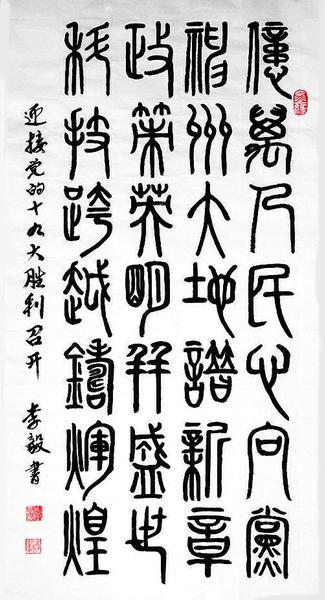 億萬人民心向黨
神州大地譜新章
政策英明并盛世
科技跨越鑄輝煌
迎接党的十九大胜利召开 李毅書